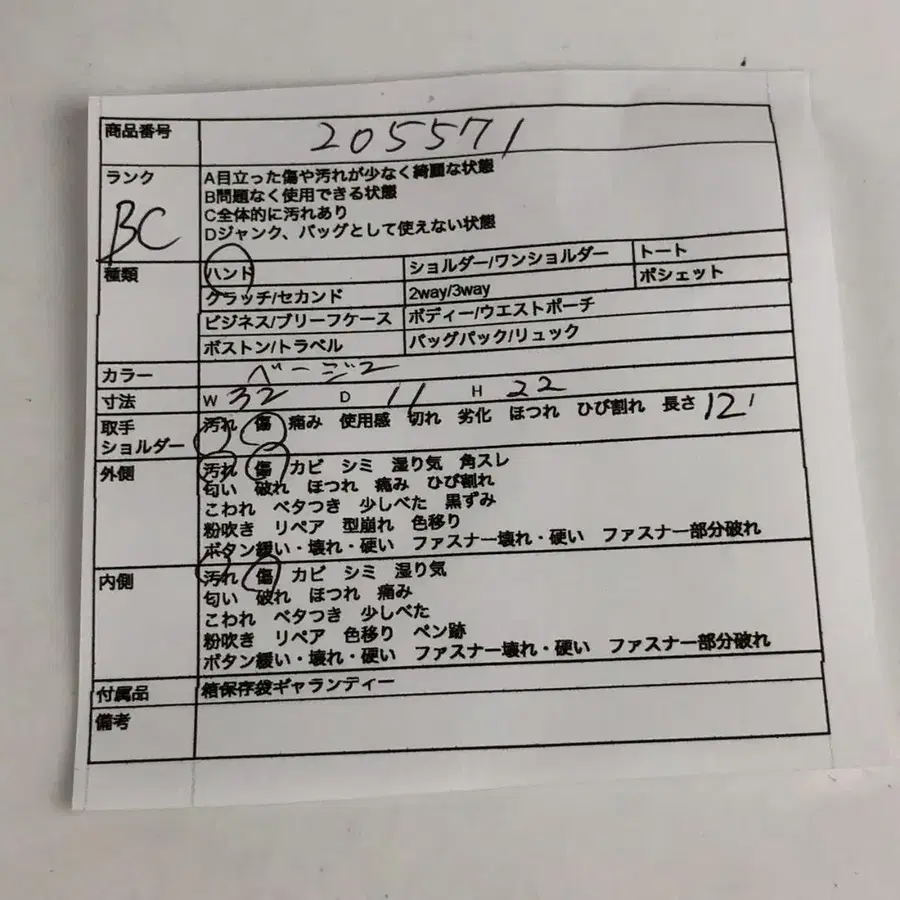 商品番号 205571
ランク BC
A目立った傷や汚れが少なく綺麗な状態
B問題なく使用できる状態
C全体的に汚れあり
Dジャンク、バッグとして使えない状態
種類 ハンド ショルダー/ワンショルダー トート
クラッチ/セカンド 2way/3way ポシェット
ビジネス/ブリーフケース ボディー/ウエストポーチ
ボストン/トラベル バッグパック/リュック
カラー ベージュ
寸法 W 32 D 11 H 22
取手 汚れ 傷 痛み 使用感 切れ 劣化 ほつれ ひび割れ 長さ 12
ショルダー
外側 汚れ 傷 カビ シミ 湿り気 角スレ
匂い 破れ ほつれ 痛み ひび割れ
こわれ ベタつき 少しべた 黒ずみ
粉吹き リペア 型崩れ 色移り
ボタン緩い・壊れ・硬い ファスナー壊れ・硬い ファスナー部分破れ
内側 汚れ 傷 カビ シミ 湿り気
匂い 破れ ほつれ 痛み
こわれ ベタつき 少しべた
粉吹き リペア 色移り ペン跡
ボタン緩い・壊れ・硬い ファスナー壊れ・硬い ファスナー部分破れ
付属品 箱保存袋ギャランティー
備考